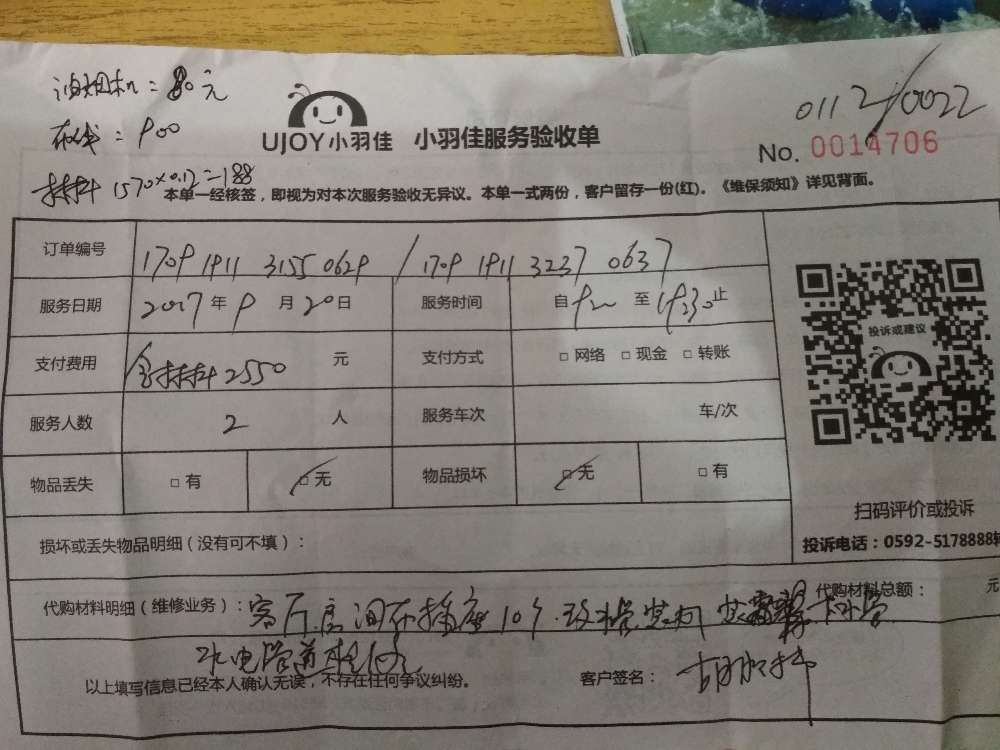 油烟机=80元
布线=900
材料 1570×0.12=188
UJOY小羽佳 小羽佳服务验收单
0112/0022
No. 0014706
本单一经核签，即视为对本次服务验收无异议。本单一式两份，客户留存一份(红)。《维保须知》详见背面。
订单编号 1709 1911 3155 0629 / 1709 1911 3237 0637
服务日期 2017年9月20日 服务时间 自 至 止
支付费用 含材料2550 元 支付方式 □ 网络 □ 现金 □ 转账
服务人数 2 人 服务车次 车/次
物品丢失 □ 有 □ 无 物品损坏 □ 无 □ 有
投诉或建议
扫码评价或投诉
投诉电话：0592-5178888转
损坏或丢失物品明细（没有可不填）：
代购材料明细（维修业务）： 客厅 插座10个 代购材料总额： 元
水电管道
以上填写信息已经本人确认无误，不存在任何争议纠纷。 客户签名：